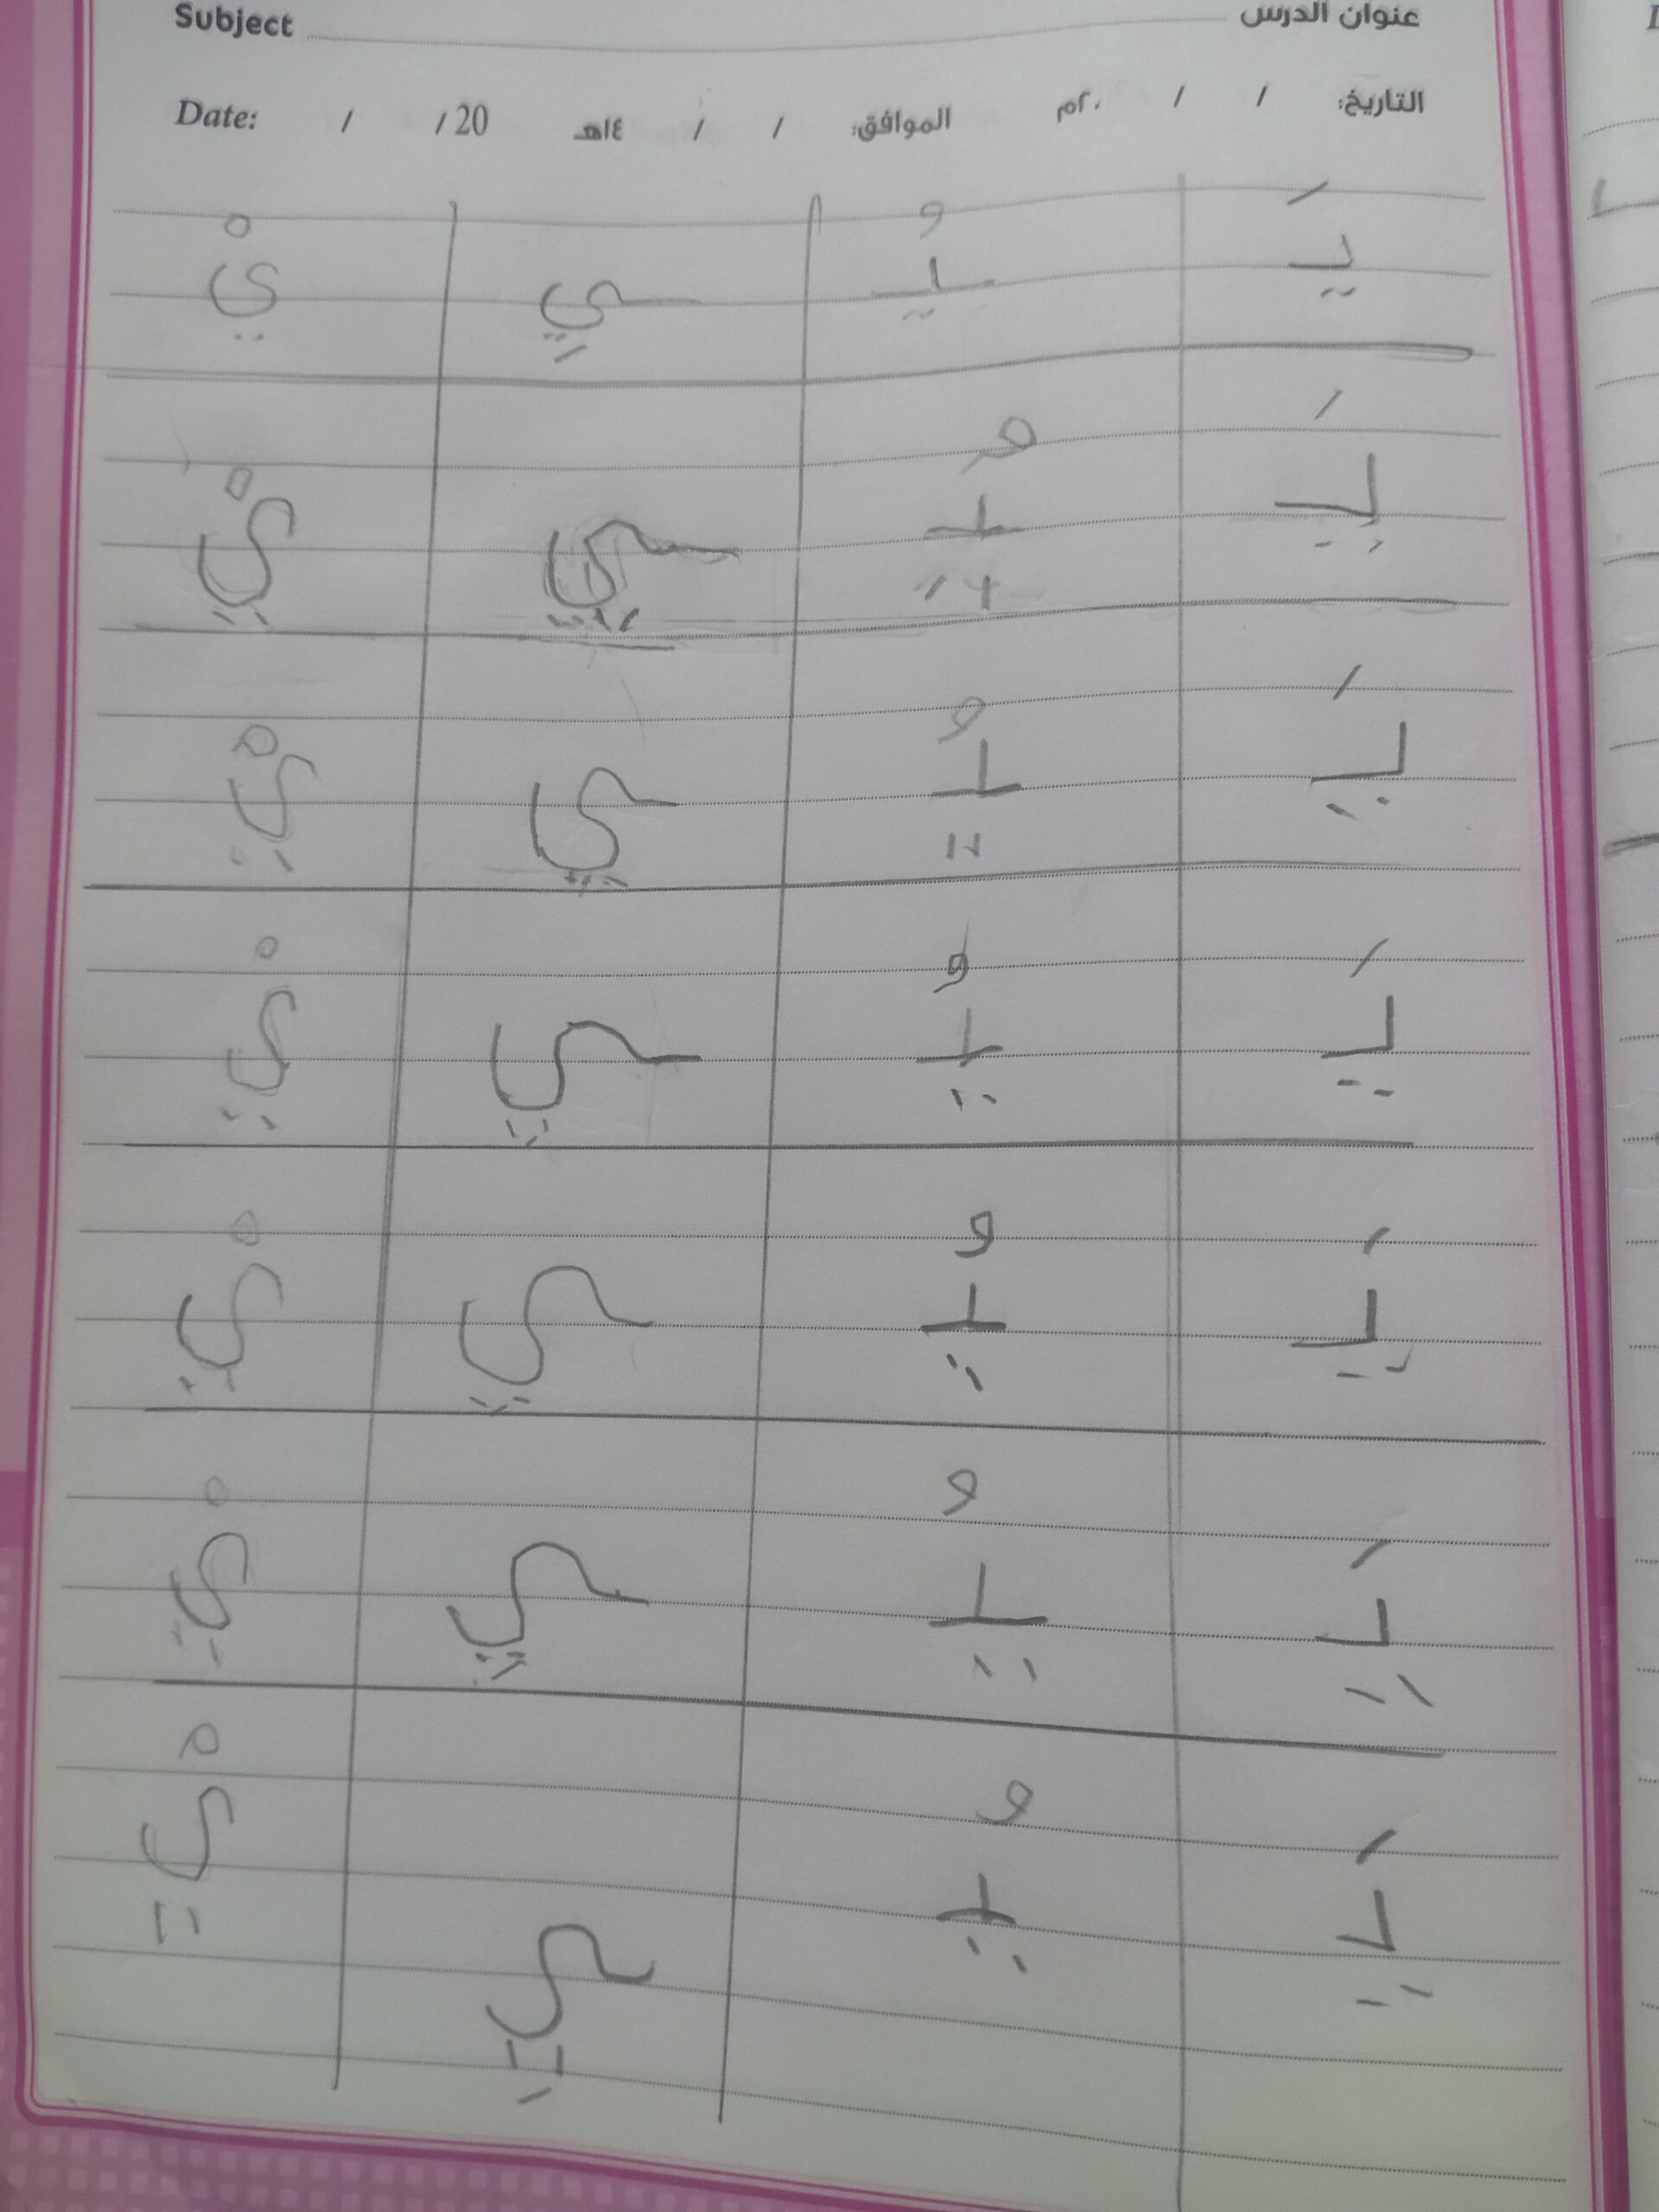 عنوان الدرس Subject
التاريخ: / / ٢٠م الموافق: / / ١٤هـ Date: / / 20
يَـ ـيُـ ـيِ يْ
يَـ ـيُـ ـي يْ
يَـ ـيُـ ـي يْ
يَـ ـيُـ ـيِ يْ
يَـ ـيُـ ـي يْ
يَـ ـيُـ ـيِ يْ
يَـ ـيُـ ـيِ يْ